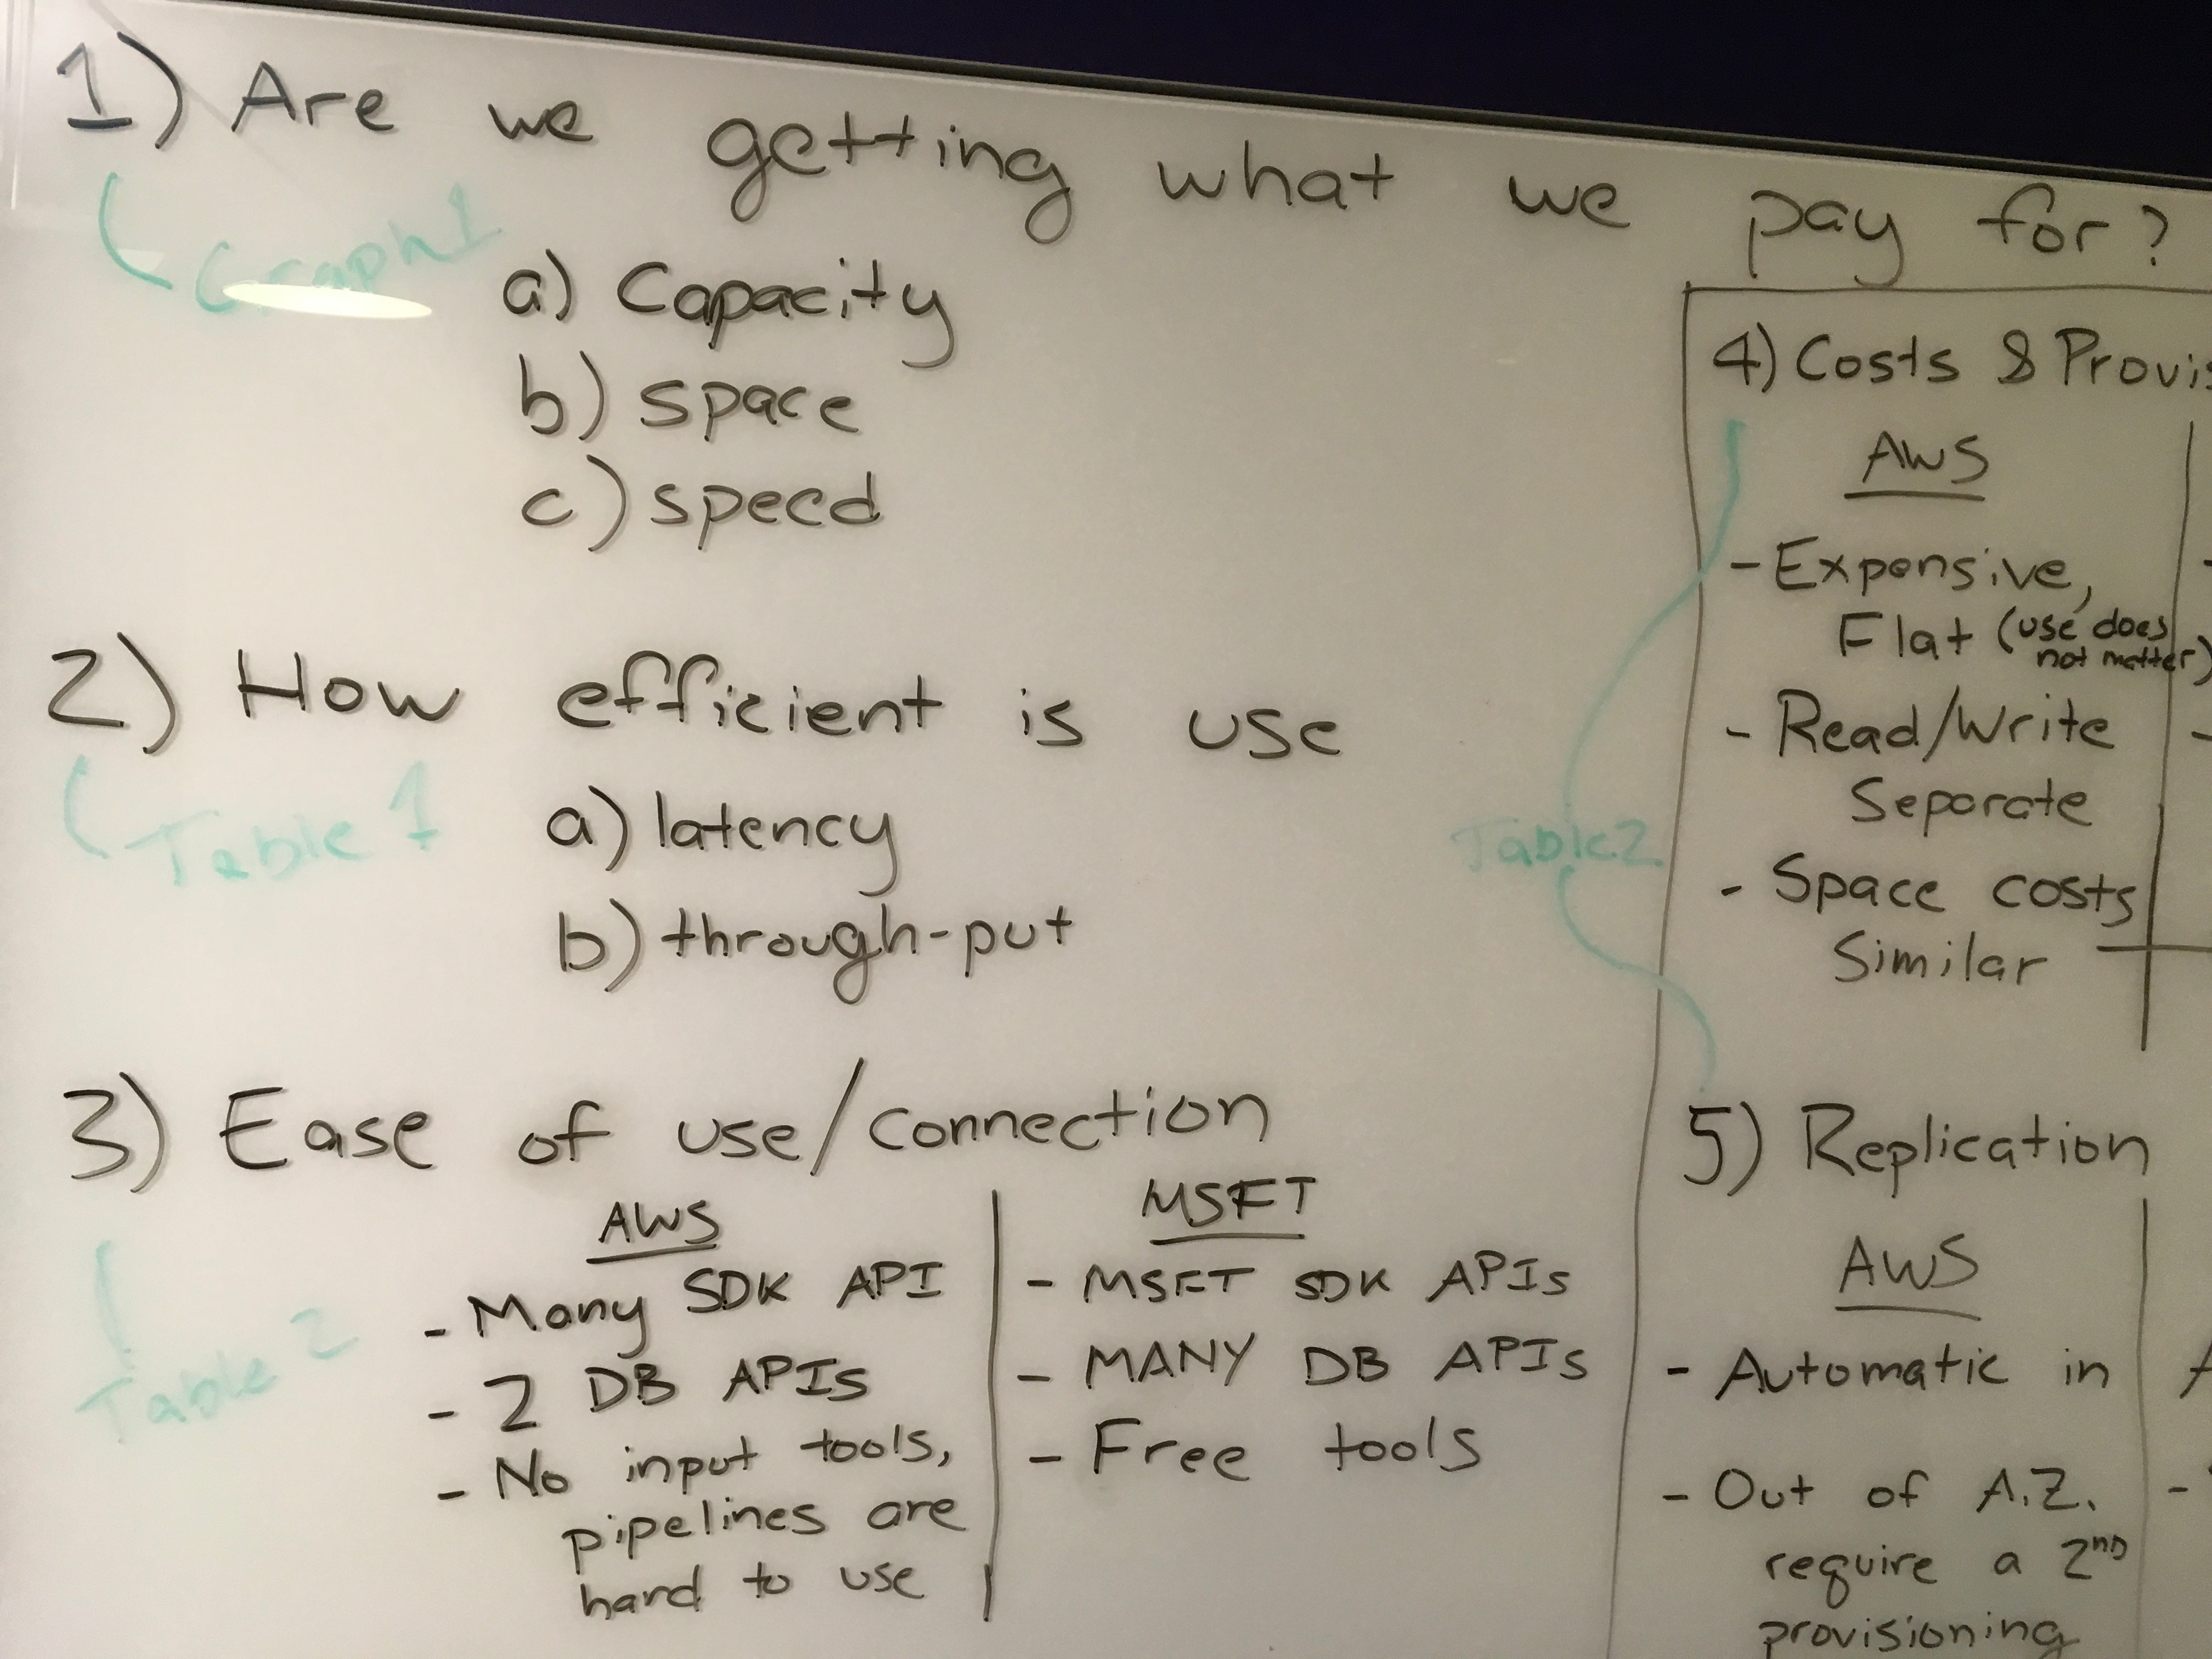 1) Are we getting what we pay for?
Graph 1
a) Capacity
b) space
c) speed
2) How efficient is use
Table 1
a) latency
b) through-put
3) Ease of use/connection
Table 2
AWS
- Many SDK API
- 2 DB APIs
- No input tools,
pipelines are
hard to use
MSFT
- MSFT SDK APIs
- MANY DB APIs
- Free tools
Table 2
4) Costs &
AWS
- Expensive,
Flat (use does
not matter)
- Read/Write
Separate
- Space costs
Similar
5) Replication
AWS
- Automatic in
- Out of A.Z.
require a 2nd
provisioning